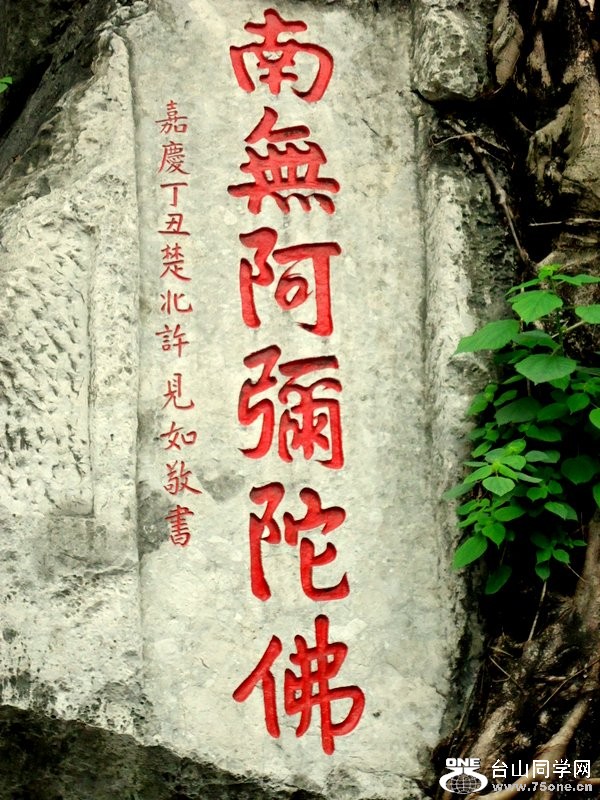 南無阿彌陀佛
嘉慶丁丑楚北許見如敬書
ONE
台山同学网
www.75one.cn